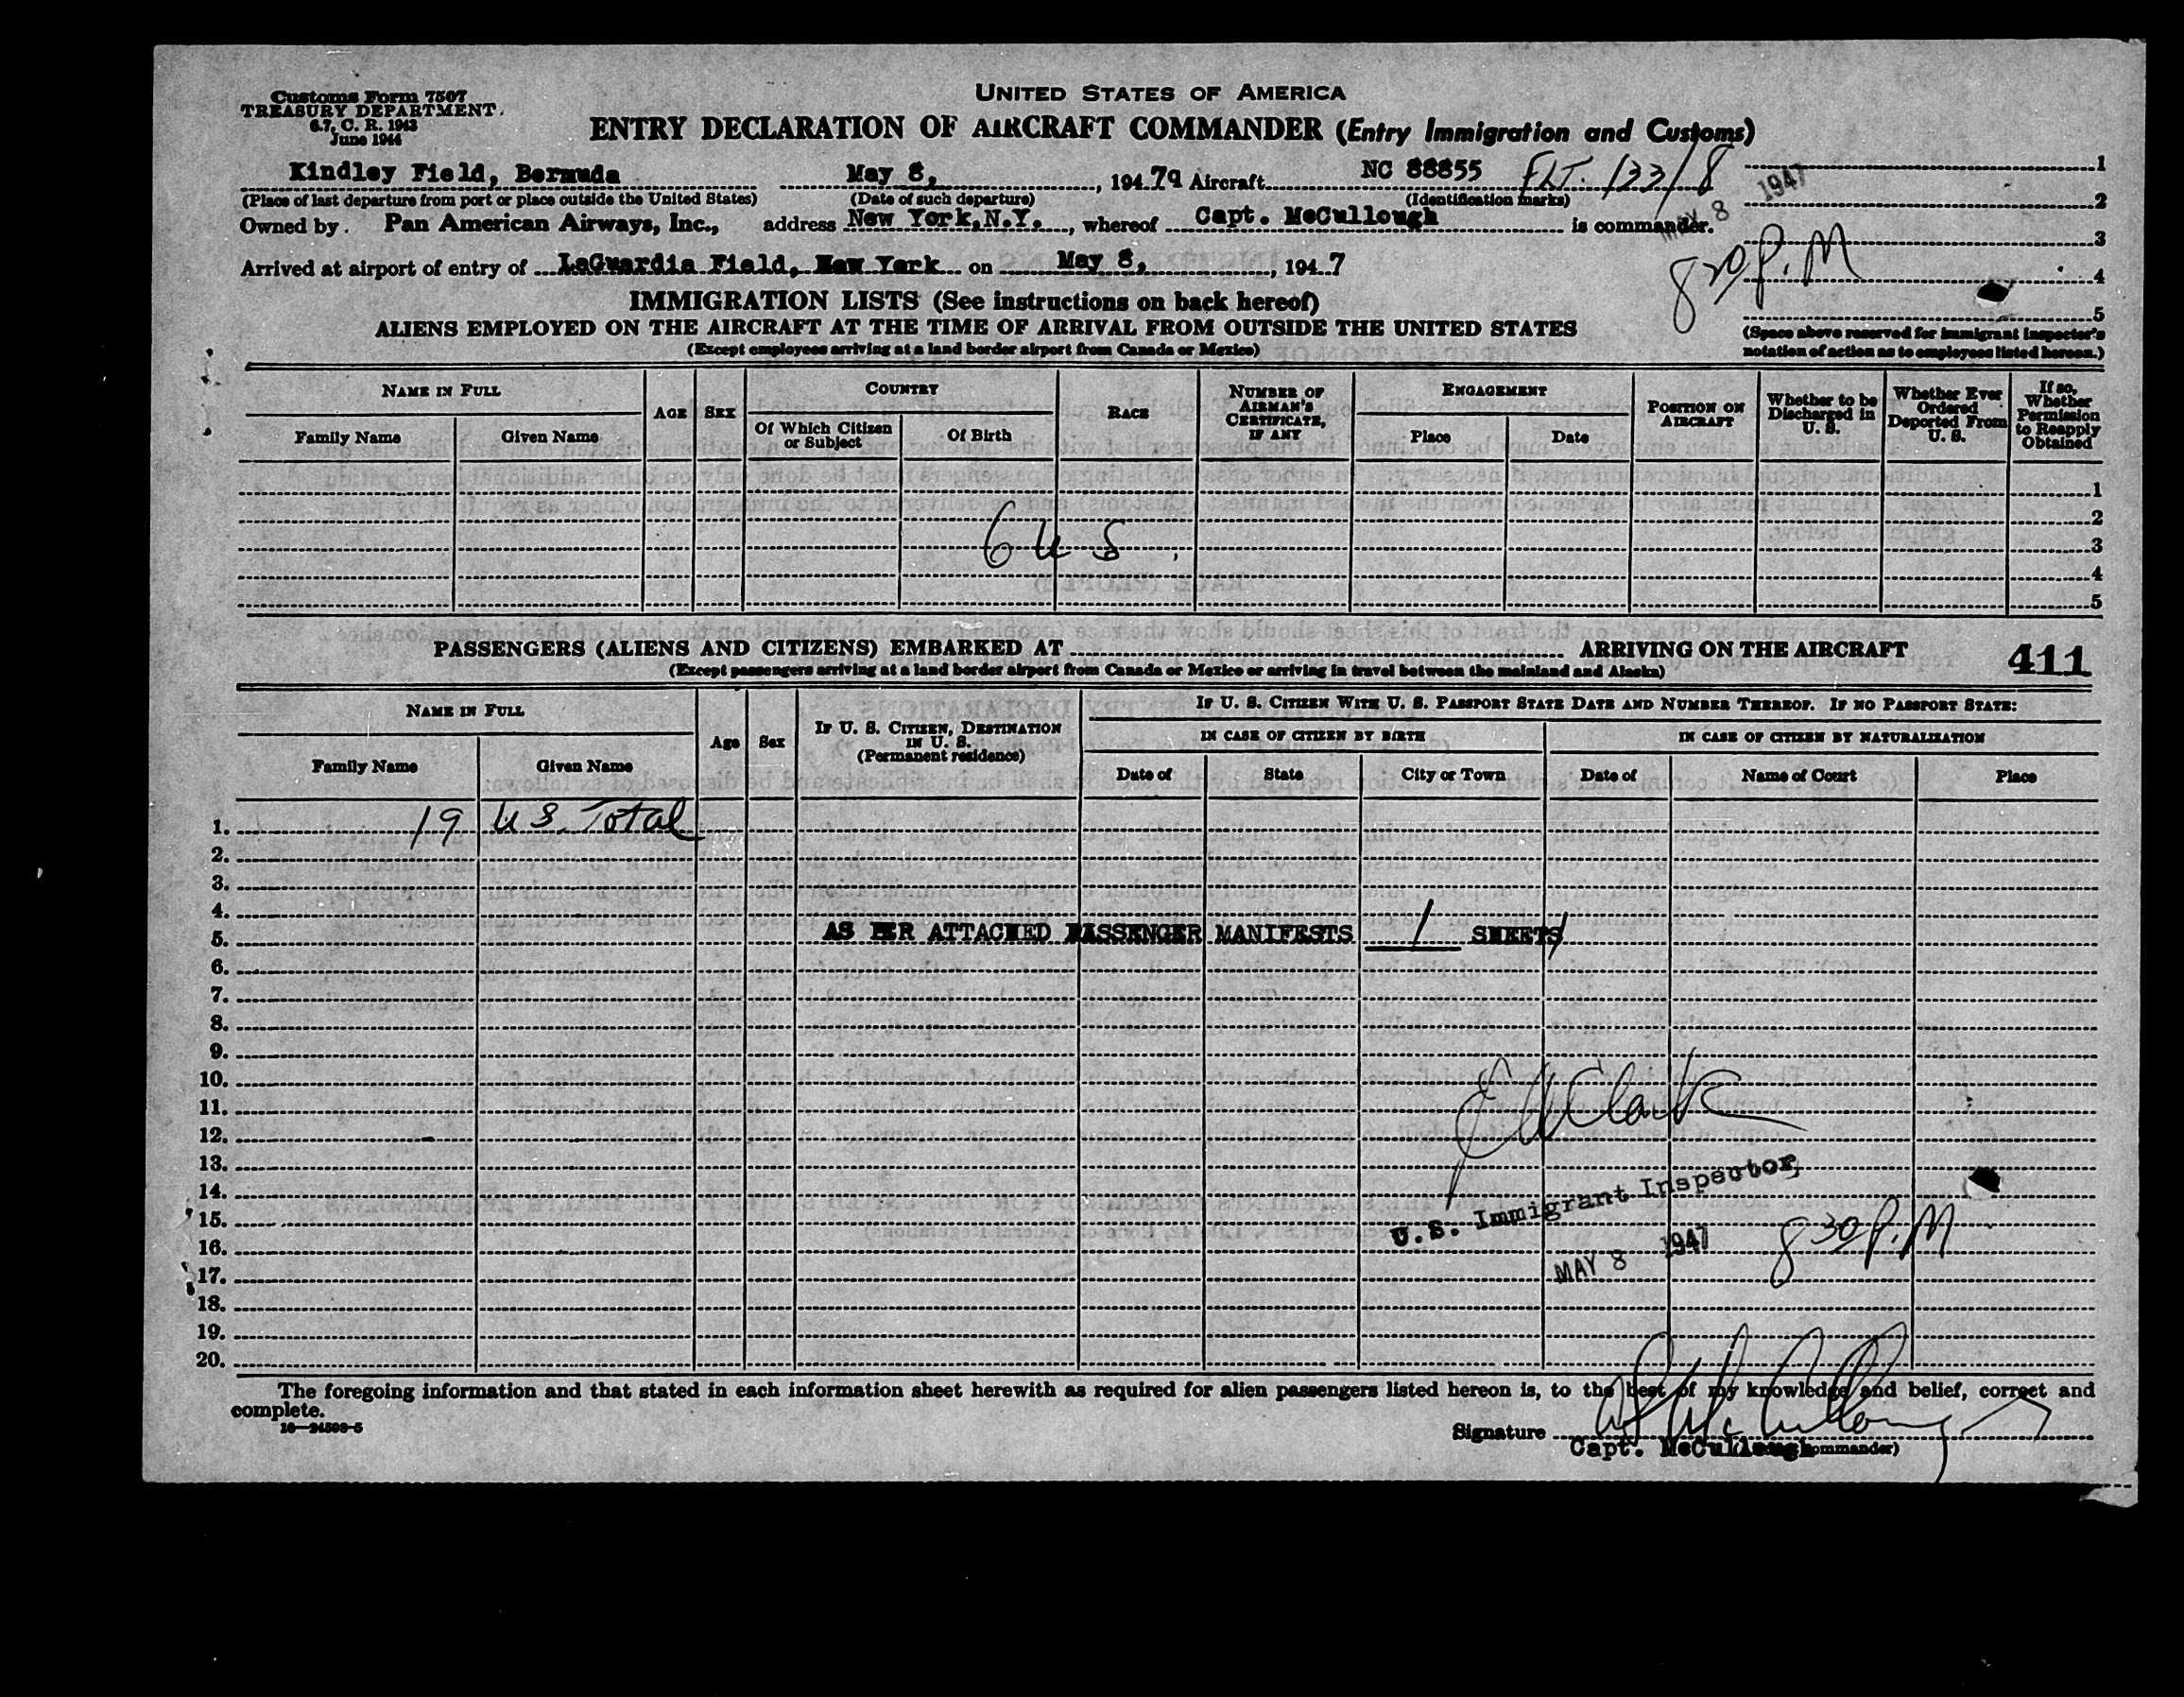 Customs Form 7507
TREASURY DEPARTMENT
6.7, C. R. 1943
June 1944
UNITED STATES OF AMERICA
ENTRY DECLARATION OF AIRCRAFT COMMANDER (Entry Immigration and Customs)
Kindley Field, Bermuda May 8, , 194 7 Aircraft NC 88855 FLT. 133/8
(Place of last departure from port or place outside the United States) (Date of such departure) (Identification marks)
MAY 8 1947
Owned by Pan American Airways, Inc., address New York, N.Y. , whereof Capt. McCullough is commander.
Arrived at airport of entry of LaGuardia Field, New York on May 8, , 194 7
8 P.M
1
2
3
4
5
(Space above reserved for immigrant inspector's
notation of action as to employees listed hereon.)
IMMIGRATION LISTS (See instructions on back hereof)
ALIENS EMPLOYED ON THE AIRCRAFT AT THE TIME OF ARRIVAL FROM OUTSIDE THE UNITED STATES
(Except employees arriving at a land border airport from Canada or Mexico)
NAME IN FULL
Family Name
Given Name
AGE
SEX
COUNTRY
Of Which Citizen
or Subject
Of Birth
RACE
NUMBER OF
AIRMAN'S
CERTIFICATE,
IF ANY
ENGAGEMENT
Place
Date
POSITION ON
AIRCRAFT
Whether to be
Discharged in
U. S.
Whether Ever
Ordered
Deported From
U. S.
If so,
Whether
Permission
to Reapply
Obtained
1
2
6 U S
3
4
5
PASSENGERS (ALIENS AND CITIZENS) EMBARKED AT ARRIVING ON THE AIRCRAFT
411
(Except passengers arriving at a land border airport from Canada or Mexico or arriving in travel between the mainland and Alaska)
NAME IN FULL
Family Name
Given Name
Age
Sex
IF U. S. CITIZEN, DESTINATION
IN U. S.
(Permanent residence)
IF U. S. CITIZEN WITH U. S. PASSPORT STATE DATE AND NUMBER THEREOF. IF NO PASSPORT STATE:
IN CASE OF CITIZEN BY BIRTH
Date of
State
City or Town
IN CASE OF CITIZEN BY NATURALIZATION
Date of
Name of Court
Place
1. 19 U S. Total
2.
3.
4.
5. AS PER ATTACHED PASSENGER MANIFESTS 1 SHEETS
6.
7.
8.
9.
10.
11. Clark
12.
13.
14. U.S. Immigrant Inspector
15.
16. MAY 8 1947 8 30 P.M
17.
18.
19.
20.
The foregoing information and that stated in each information sheet herewith as required for alien passengers listed hereon is, to the best of my knowledge and belief, correct and
complete.
16—24598-5
Signature McCullough
Capt. McCullough
commander)